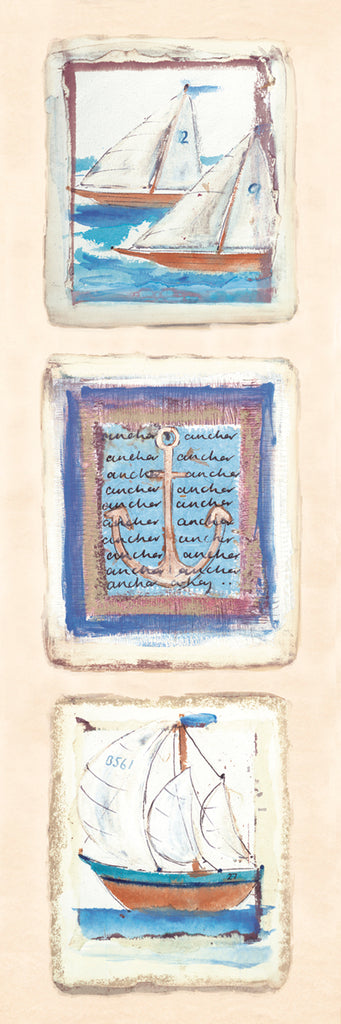 2
9
anchor anchor
anchor anchor
anchor anchor
anchor anchor
anchor anchor
anchor anchor
anchor anchor
anchor anchor
anchor anchor
anchor ahoy ..
B561
27